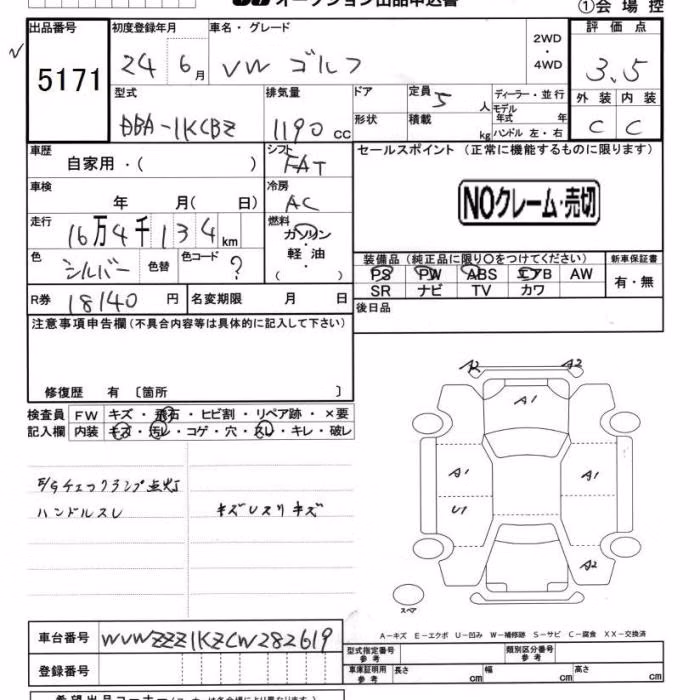 オークション出品申込書
①会場控
出品番号 初度登録年月 車名・グレード 評価点
5171 24年6月 VW ゴルフ 2WD・4WD 3.5
型式 排気量 ドア 定員 5人 ディーラー・並行 外装 内装
モデル年式 年
DBA-1KCBZ 1190cc 形状 積載 kg ハンドル 左・右 C C
車歴 シフト セールスポイント (正常に機能するものに限ります)
自家用・( ) FAT
車検 冷房 NOクレーム・売切
年 月( 日) AC
走行 燃料
16万4千134km ガソリン
軽油
( )
装備品 (純正品に限り〇をつけてください) 新車保証書
色 シルバー 色替 色コード ?
PS PW ABS エアB AW 有・無
SR ナビ TV カワ
R券 18140円 名変期限 月 日
後日品
注意事項申告欄(不具合内容等は具体的に記入して下さい)
修復歴 有 〔箇所 〕
検査員 FW キズ・飛石・ヒビ割・リペア跡・×要
記入欄 内装 キズ・汚レ・コゲ・穴・スレ・キレ・破レ
A2 A2
A1
A1 A1
E/Gチェックランプ点灯
ハンドルスレ キズUスリキズ
U1
A2
スペア
A-キズ E-エクボ U-凹み W-補修跡 S-サビ C-腐食 XX-交換済
車台番号 WVWZZZ1KZCW282619
型式指定番号 参考 類別区分番号 参考
登録番号 車庫証明用 参考 長さ cm 幅 cm 高さ cm
希望出品コーナー